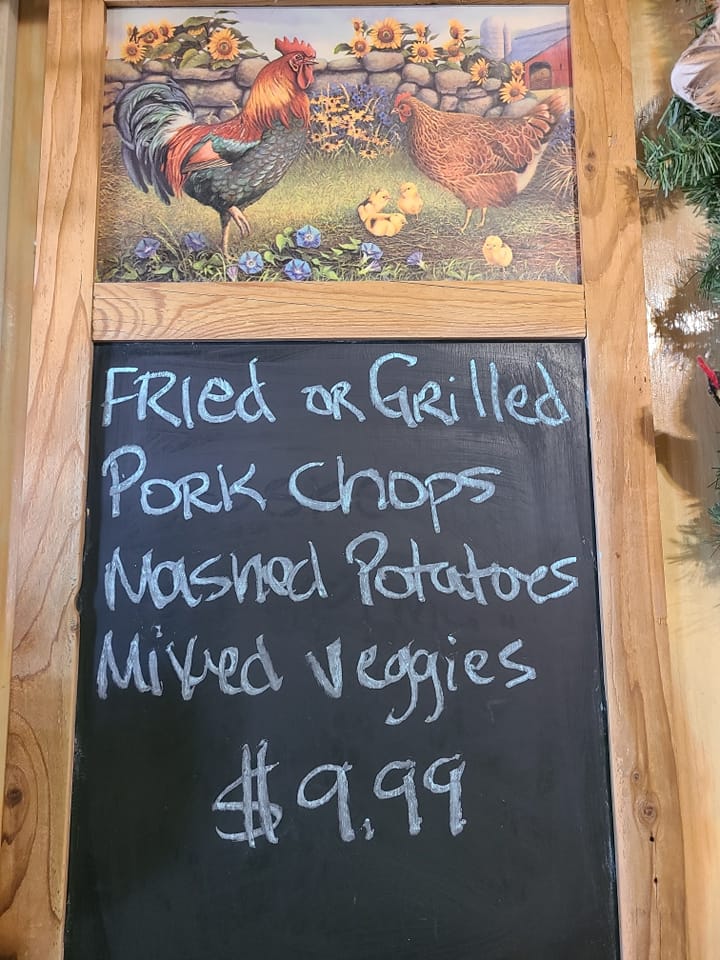 Fried or Grilled
Pork Chops
Mashed Potatoes
Mixed Veggies
$9.99